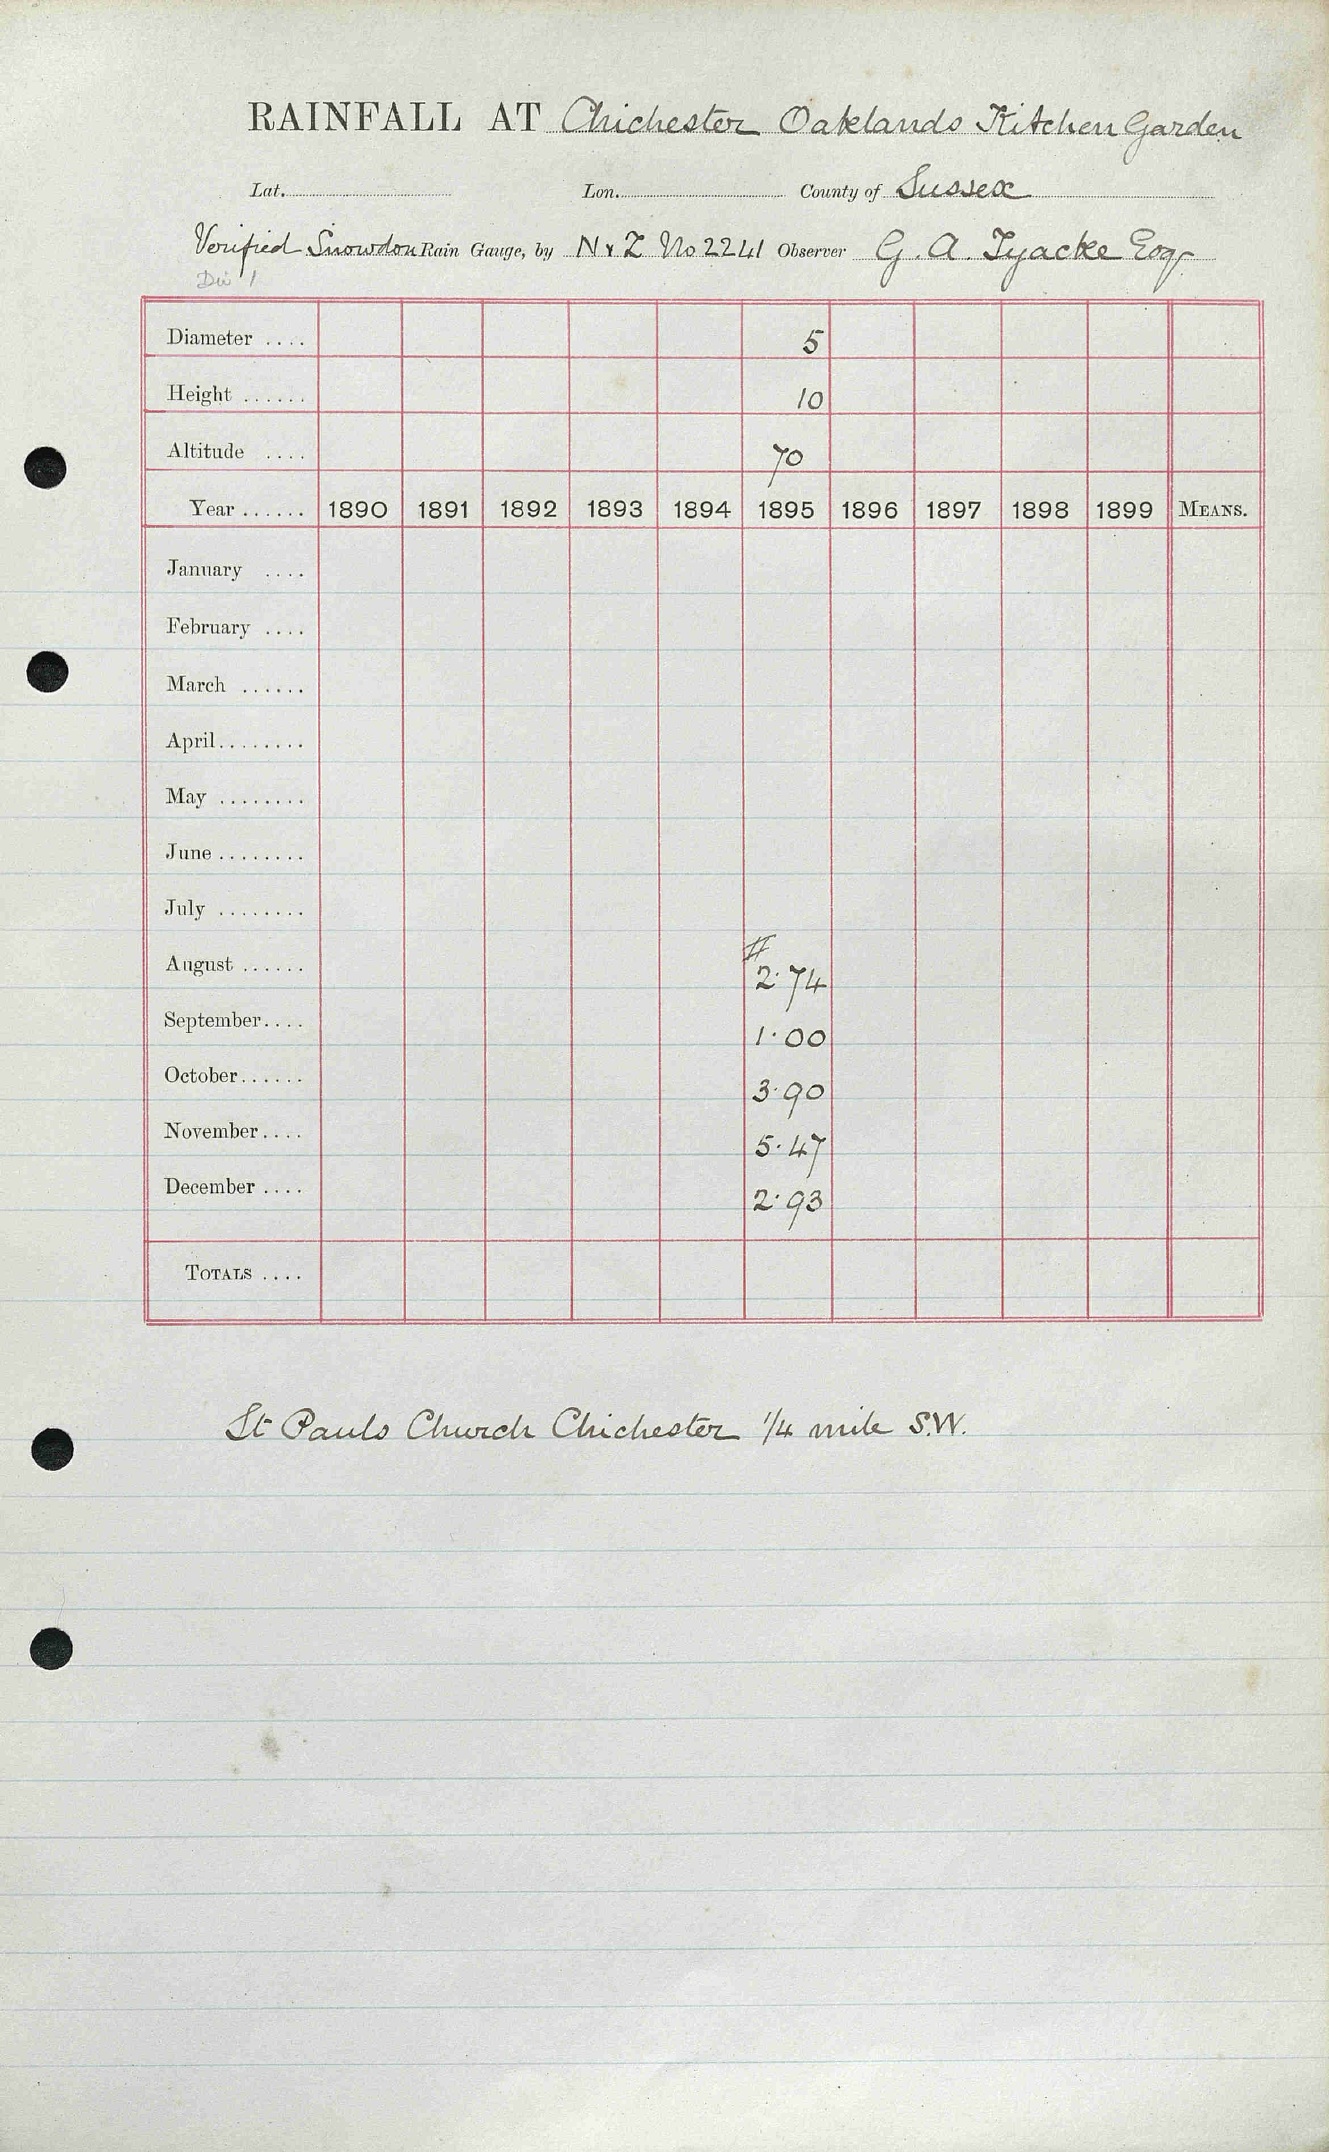 RAINFALL AT Chichester Oaklands Kitchen Garden
Lat. Lon. County of Sussex
Verified Snowdon Rain Gauge, by N & Z No 2241 Observer G. A. Tyacke Esqr
Div 1
Diameter .... 5
Height ...... 10
Altitude .... 70
Year ...... 1890 1891 1892 1893 1894 1895 1896 1897 1898 1899 MEANS.
January ....
February ....
March ......
April ........
May ........
June ........
July ........
#
August ...... 2·74
September .... 1·00
October ...... 3·90
November .... 5·47
December .... 2·93
TOTALS ....
St Pauls Church Chichester 1/4 mile S.W.